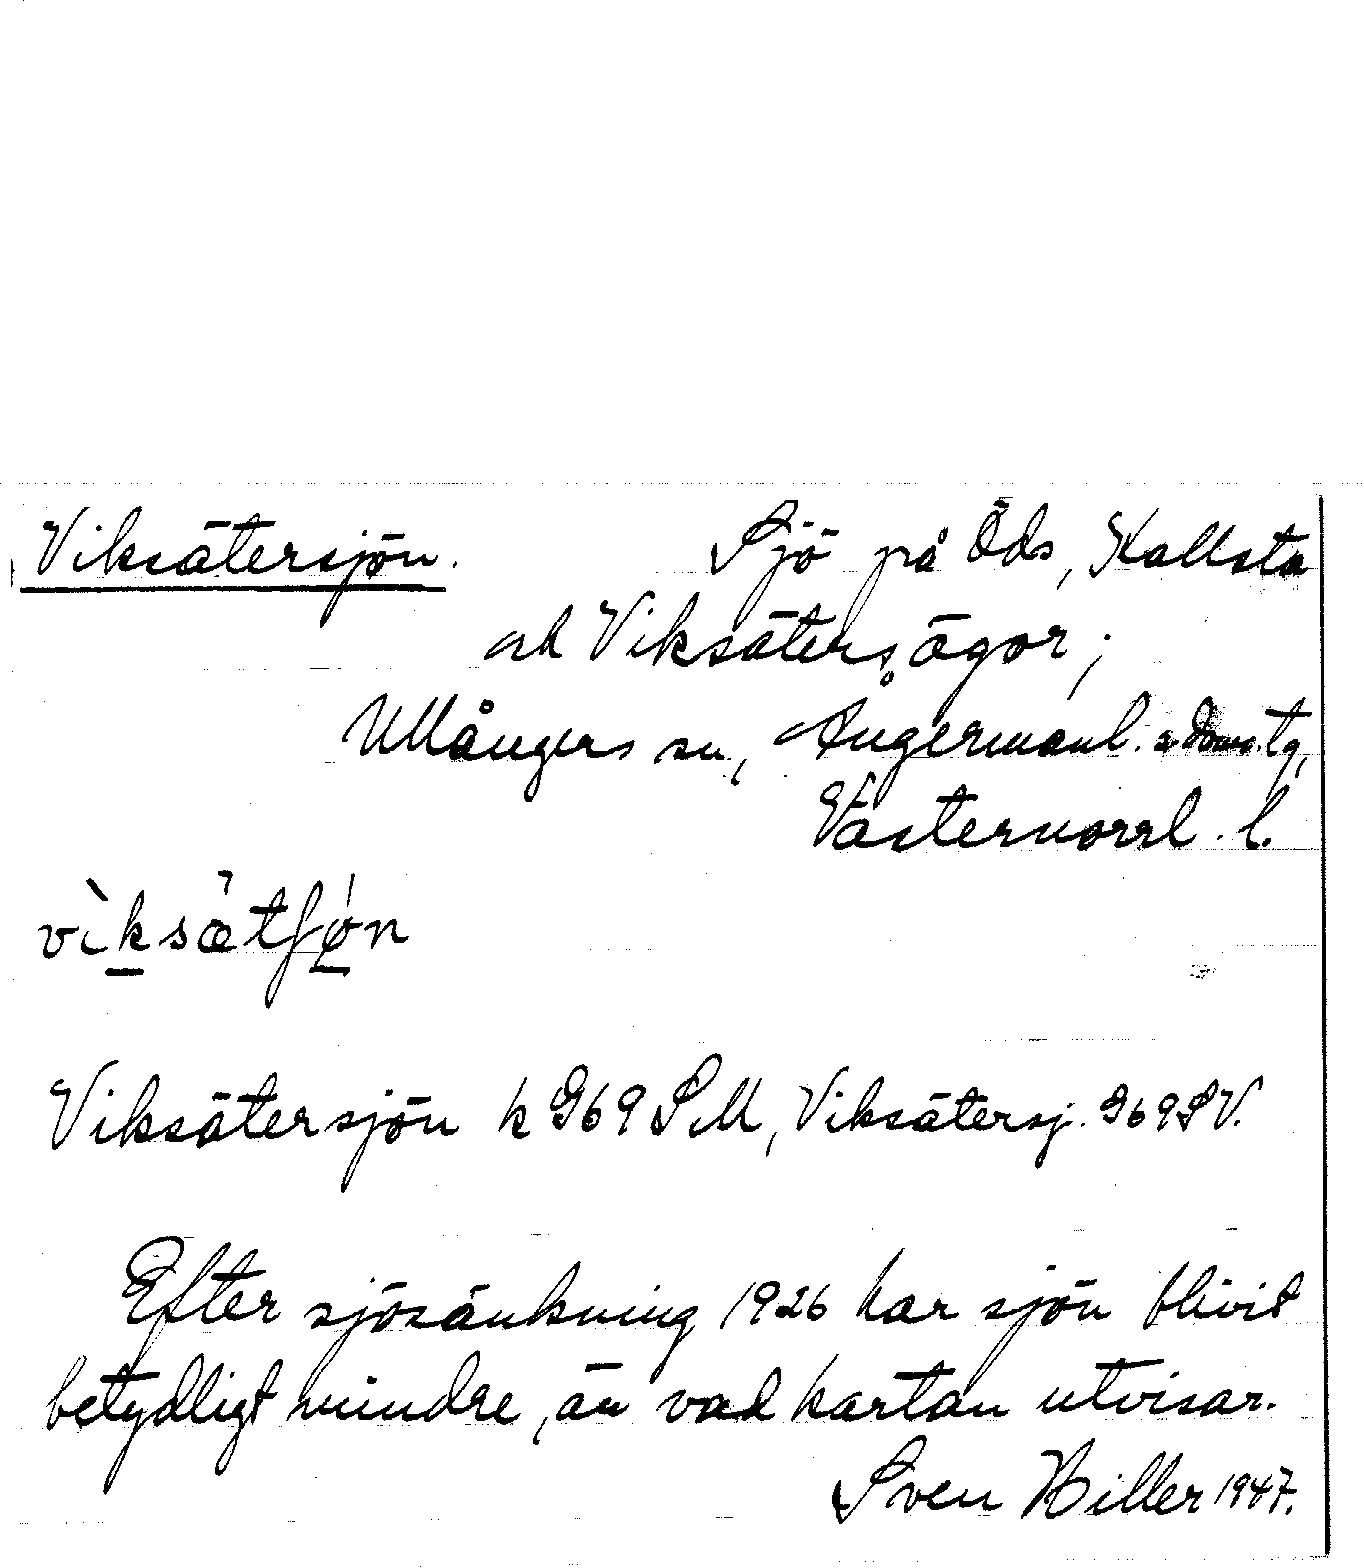 Viksätersjön. Sjö på Öds, Kallsta
och Viksäters ägor;
Ullångers sn, Ångermanl. s. doms. tg,
Västernorrl. l.
vìksǟtʃø̀n
Viksätersjön k G69 SM, Viksätersj. G69 SV.
Efter sjösänkning 1926 har sjön blivit
betydligt mindre, än vad kartan utvisar.
Sven Hiller 1947.